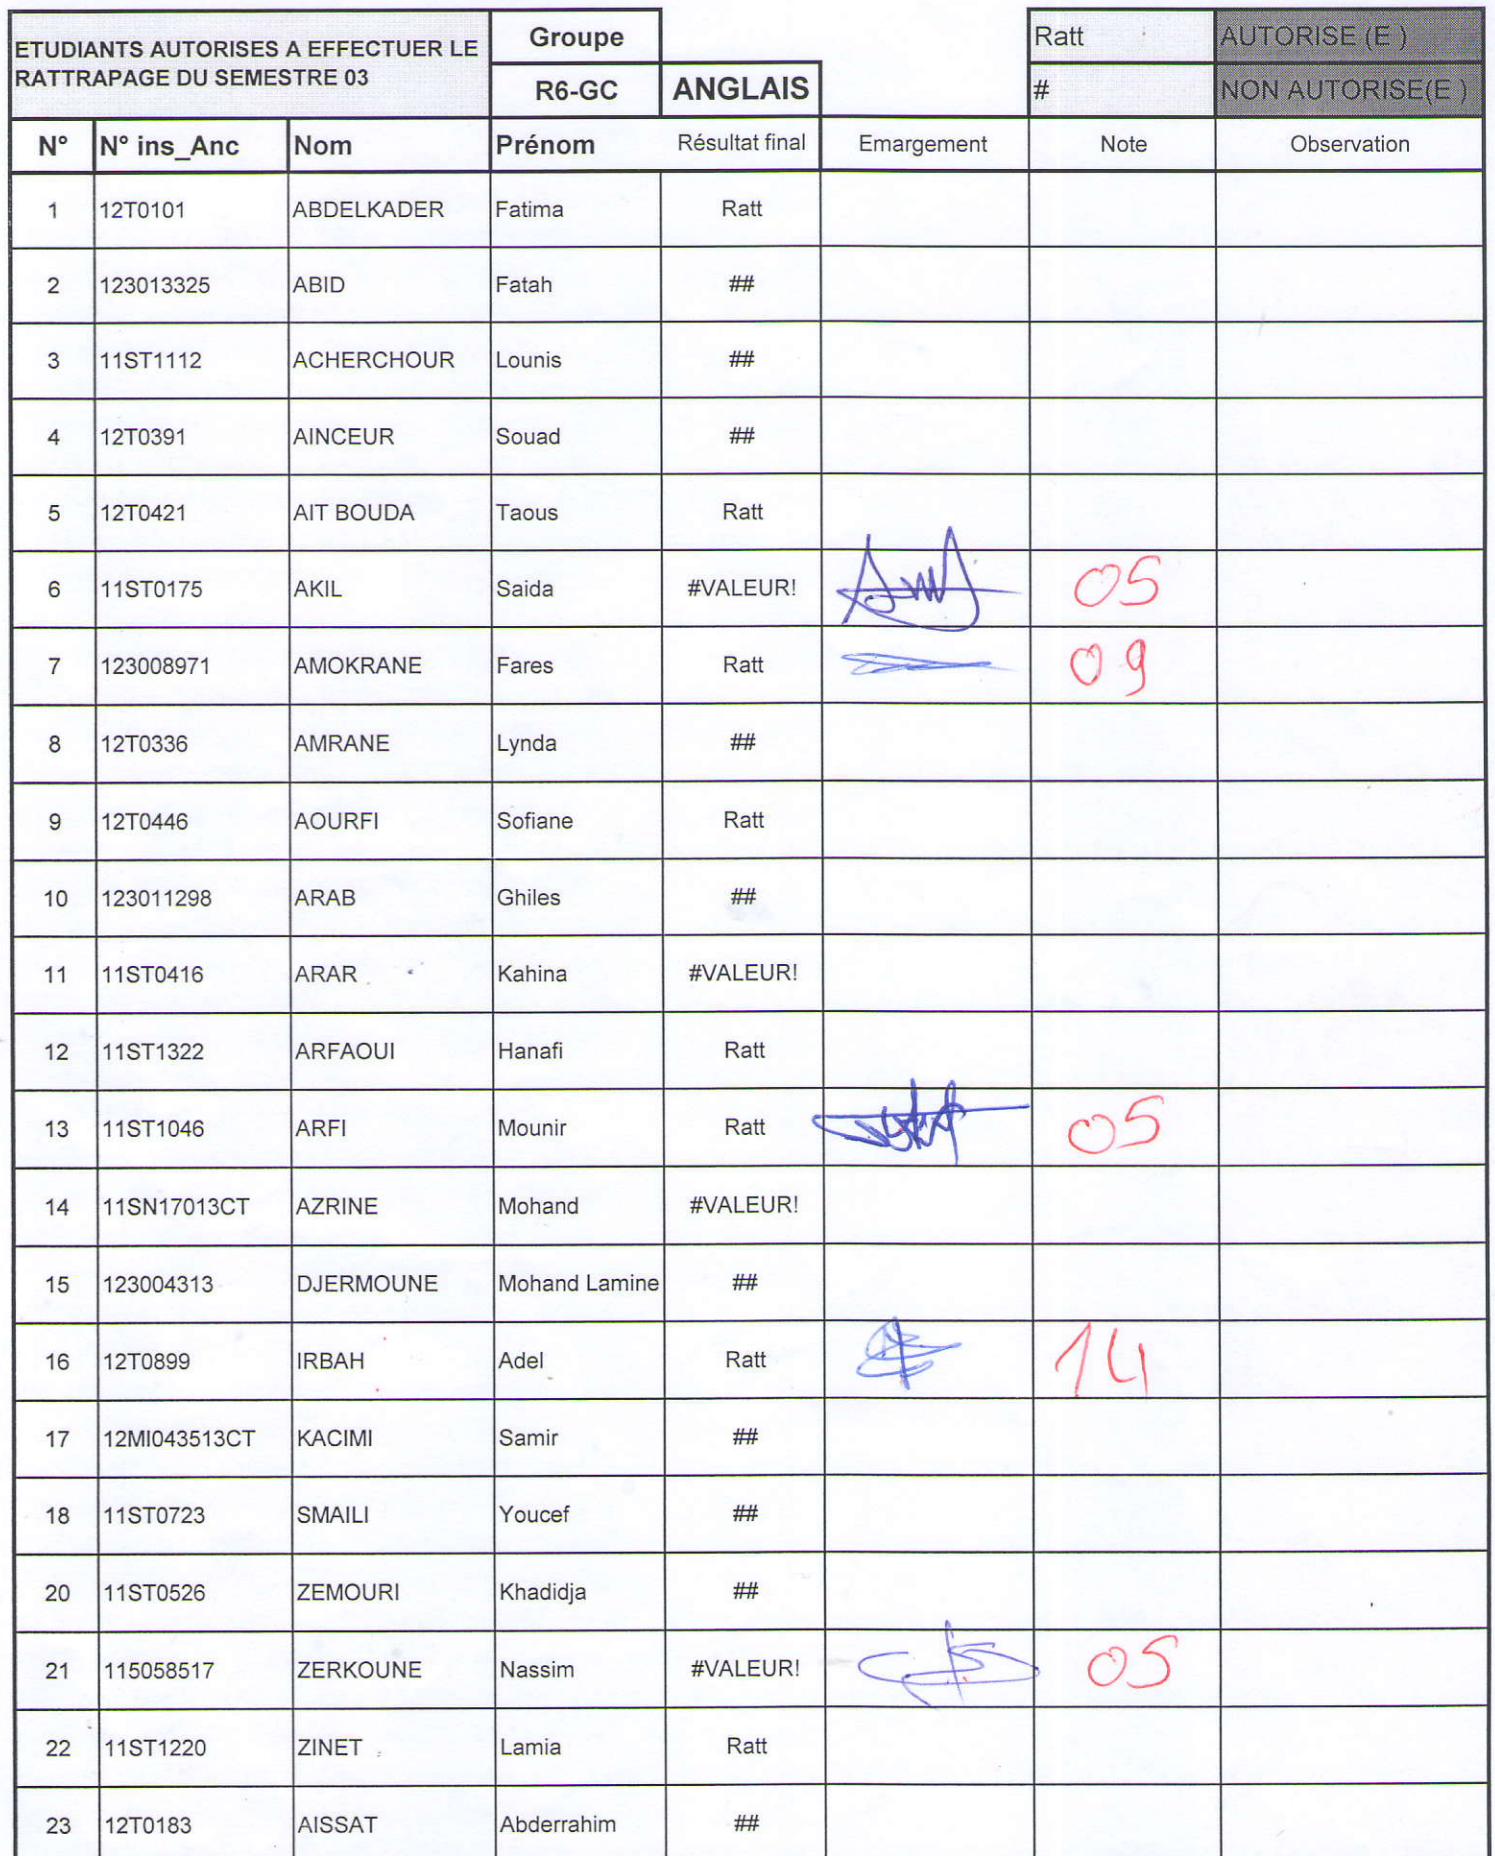 ETUDIANTS AUTORISES A EFFECTUER LE Groupe Ratt AUTORISE (E )
RATTRAPAGE DU SEMESTRE 03 R6-GC ANGLAIS # NON AUTORISE(E )
N° N° ins_Anc Nom Prénom Résultat final Emargement Note Observation
1 12T0101 ABDELKADER Fatima Ratt
2 123013325 ABID Fatah ##
3 11ST1112 ACHERCHOUR Lounis ##
4 12T0391 AINCEUR Souad ##
5 12T0421 AIT BOUDA Taous Ratt
6 11ST0175 AKIL Saida #VALEUR! 05
7 123008971 AMOKRANE Fares Ratt 09
8 12T0336 AMRANE Lynda ##
9 12T0446 AOURFI Sofiane Ratt
10 123011298 ARAB Ghiles ##
11 11ST0416 ARAR Kahina #VALEUR!
12 11ST1322 ARFAOUI Hanafi Ratt
13 11ST1046 ARFI Mounir Ratt 05
14 11SN17013CT AZRINE Mohand #VALEUR!
15 123004313 DJERMOUNE Mohand Lamine ##
16 12T0899 IRBAH Adel Ratt 14
17 12MI043513CT KACIMI Samir ##
18 11ST0723 SMAILI Youcef ##
20 11ST0526 ZEMOURI Khadidja ##
21 115058517 ZERKOUNE Nassim #VALEUR! 05
22 11ST1220 ZINET Lamia Ratt
23 12T0183 AISSAT Abderrahim ##